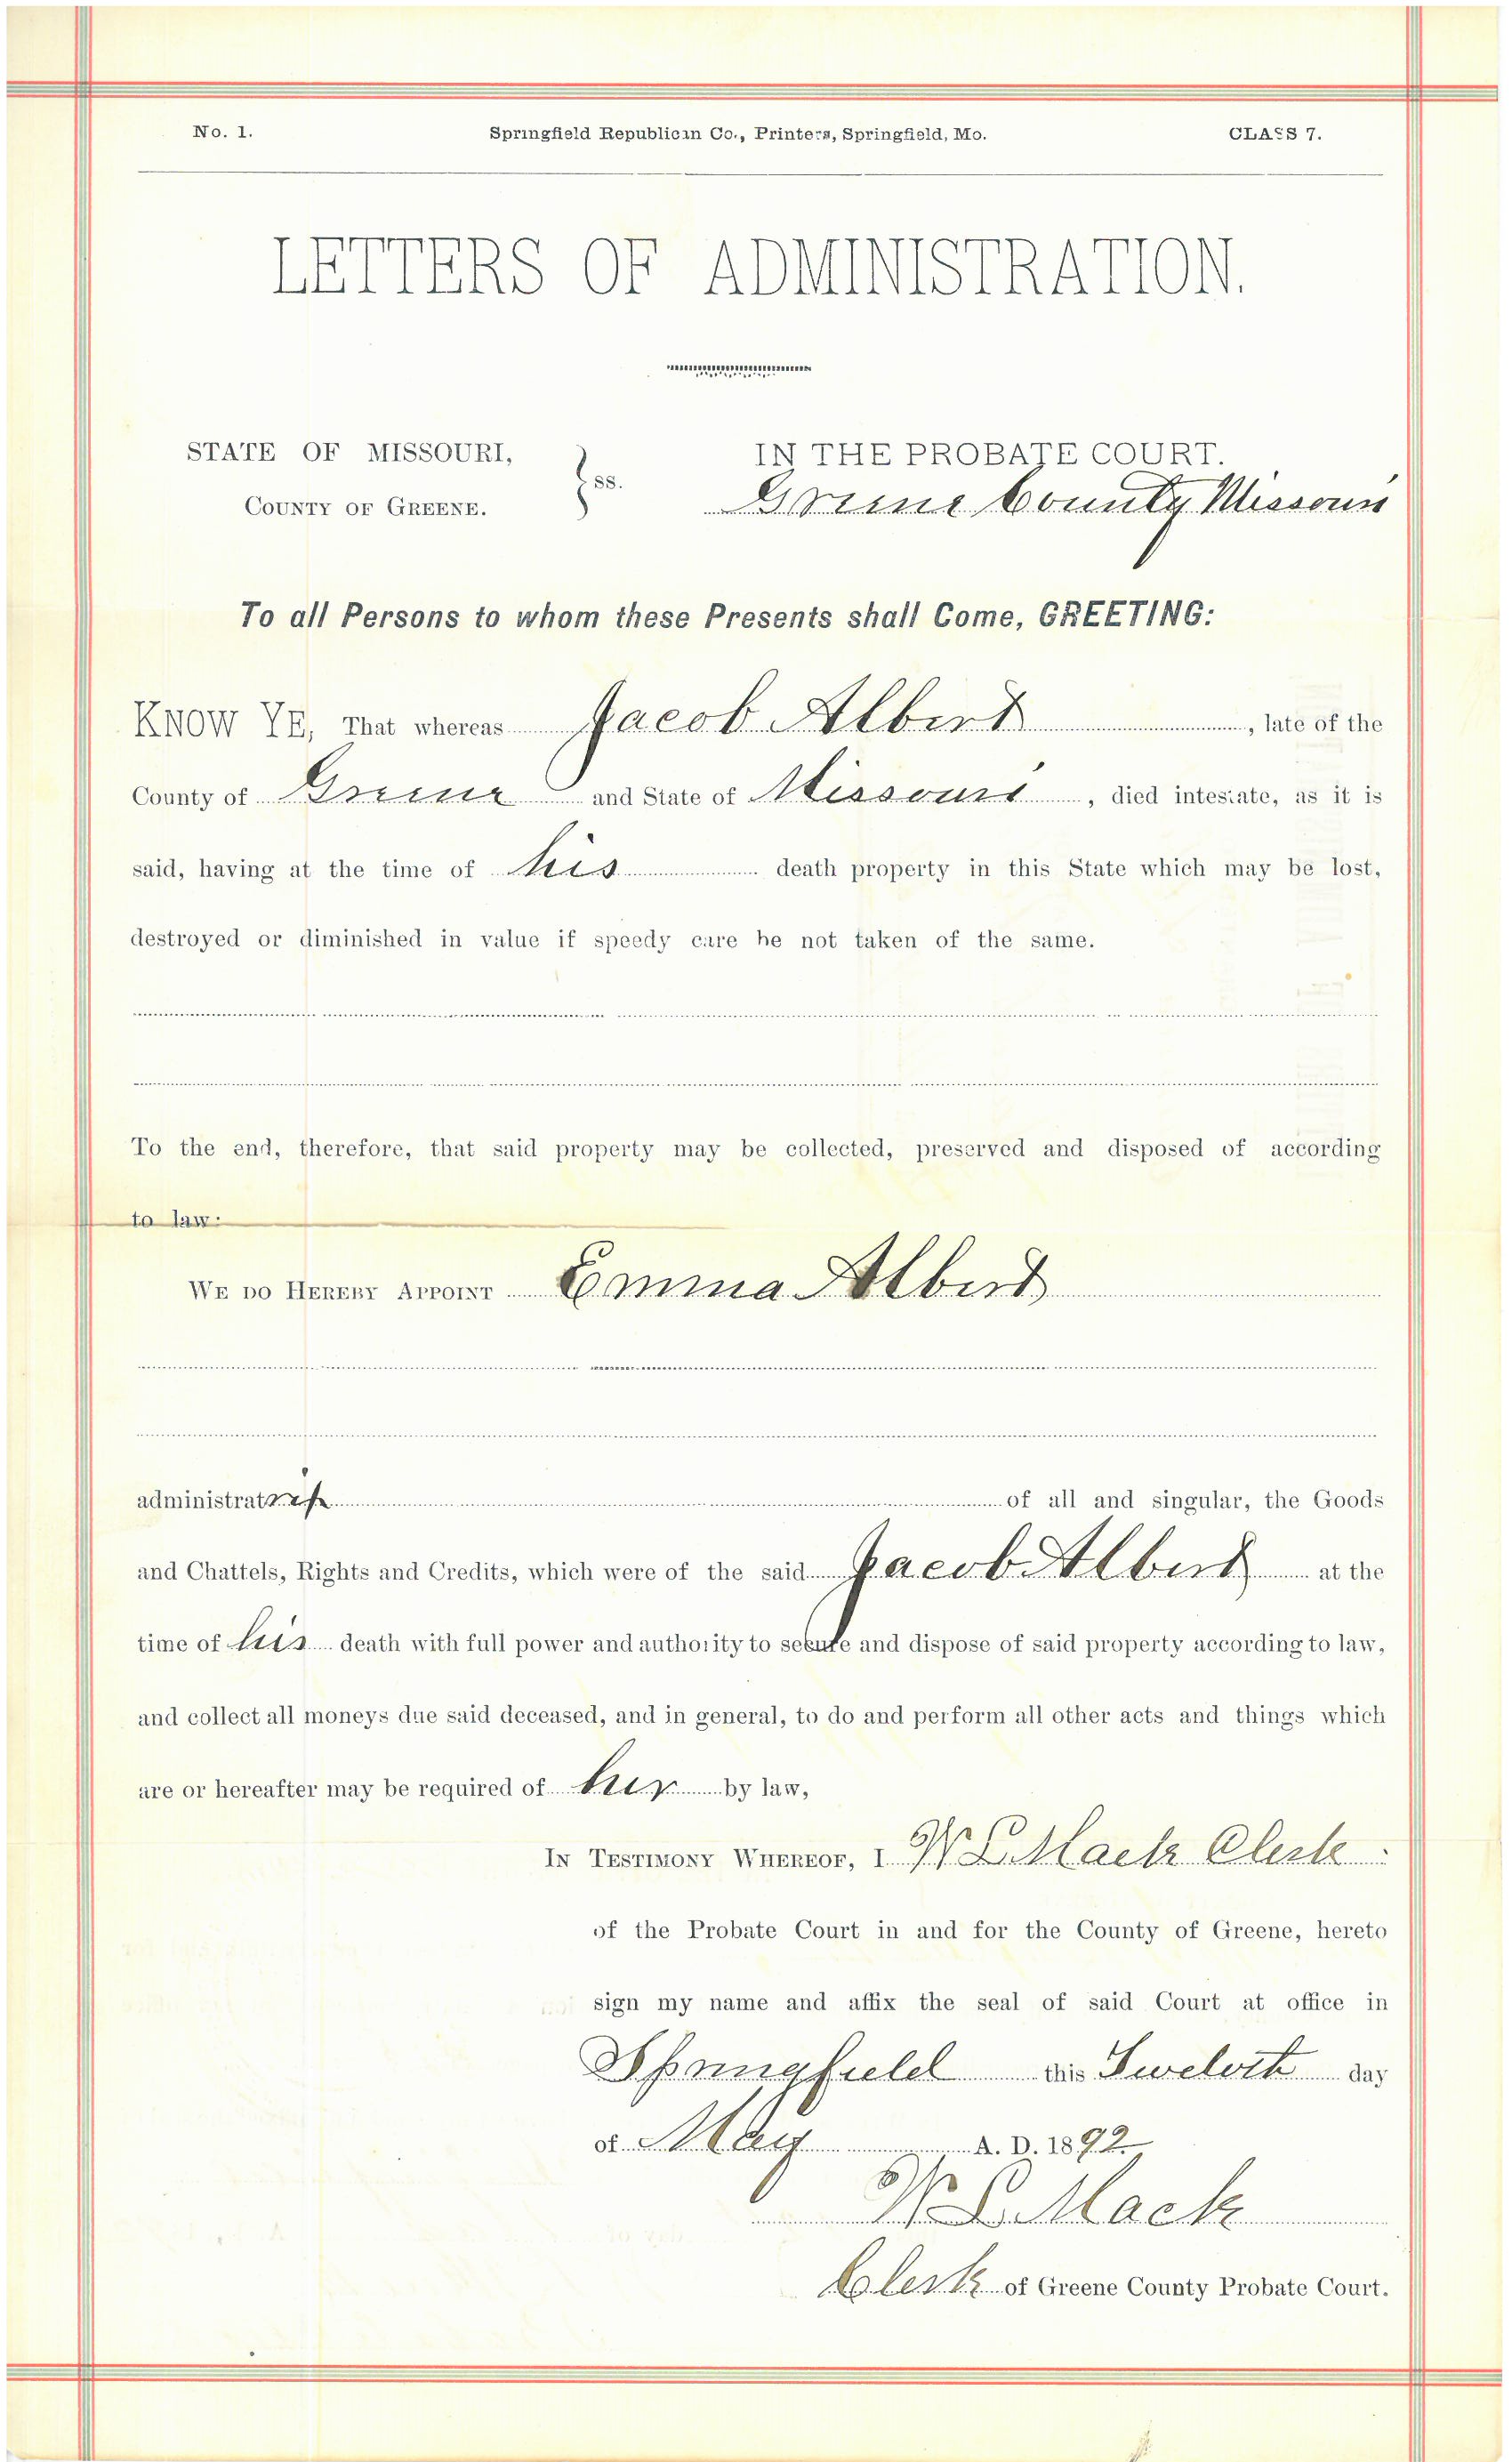 No. 1. Springfield Republican Co., Printers, Springfield, Mo. CLASS 7.
LETTERS OF ADMINISTRATION.
STATE OF MISSOURI, IN THE PROBATE COURT.
COUNTY OF GREENE. } ss. Greene County Missouri
To all Persons to whom these Presents shall Come, GREETING:
KNOW YE, That whereas Jacob Albert, late of the
County of Greene and State of Missouri, died intestate, as it is
said, having at the time of his death property in this State which may be lost,
destroyed or diminished in value if speedy care be not taken of the same.
To the end, therefore, that said property may be collected, preserved and disposed of according
to law:
WE DO HEREBY APPOINT Emma Albert
administratrix of all and singular, the Goods
and Chattels, Rights and Credits, which were of the said Jacob Albert at the
time of his death with full power and authority to secure and dispose of said property according to law,
and collect all moneys due said deceased, and in general, to do and perform all other acts and things which
are or hereafter may be required of her by law,
IN TESTIMONY WHEREOF, I W L Mack Clerk
of the Probate Court in and for the County of Greene, hereto
sign my name and affix the seal of said Court at office in
Springfield this Twelvth day
of May A. D. 1892.
W L Mack
Clerk of Greene County Probate Court.